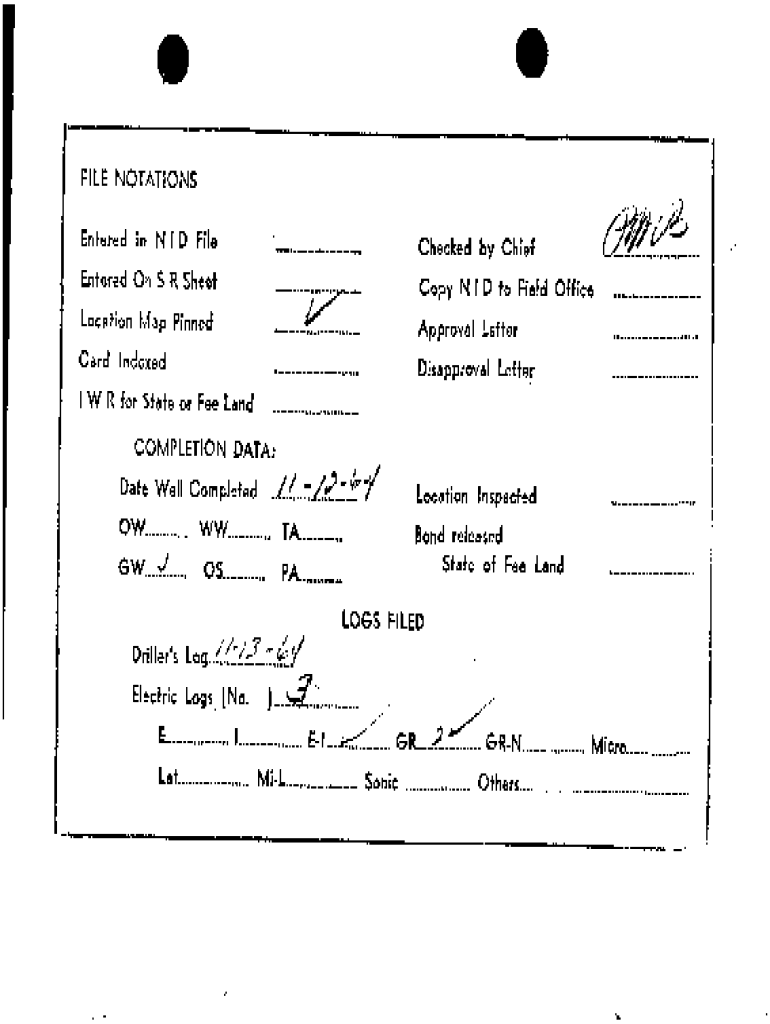 FILE NOTATIONS
Entered in N I D File ............
Checked by Chief ............
Entered On S R Sheet ............
Copy N I D to Field Office ............
Location Map Pinned ✓
Approval Letter ............
Card Indexed ............
Disapproval Letter ............
I W R for State or Fee Land ............
COMPLETION DATA:
Date Well Completed 11-12-64
Location Inspected ............
OW......... WW......... TA.........
Bond released
GW ✓ OS......... PA.........
State of Fee Land ............
LOGS FILED
Driller's Log 11-13-64
Electric Logs (No. ) 3
E............ I............ E-I ✓ GR 2 ✓ GR-N............ Micro............
Lat............ Mi-L............ Sonic ............ Others............